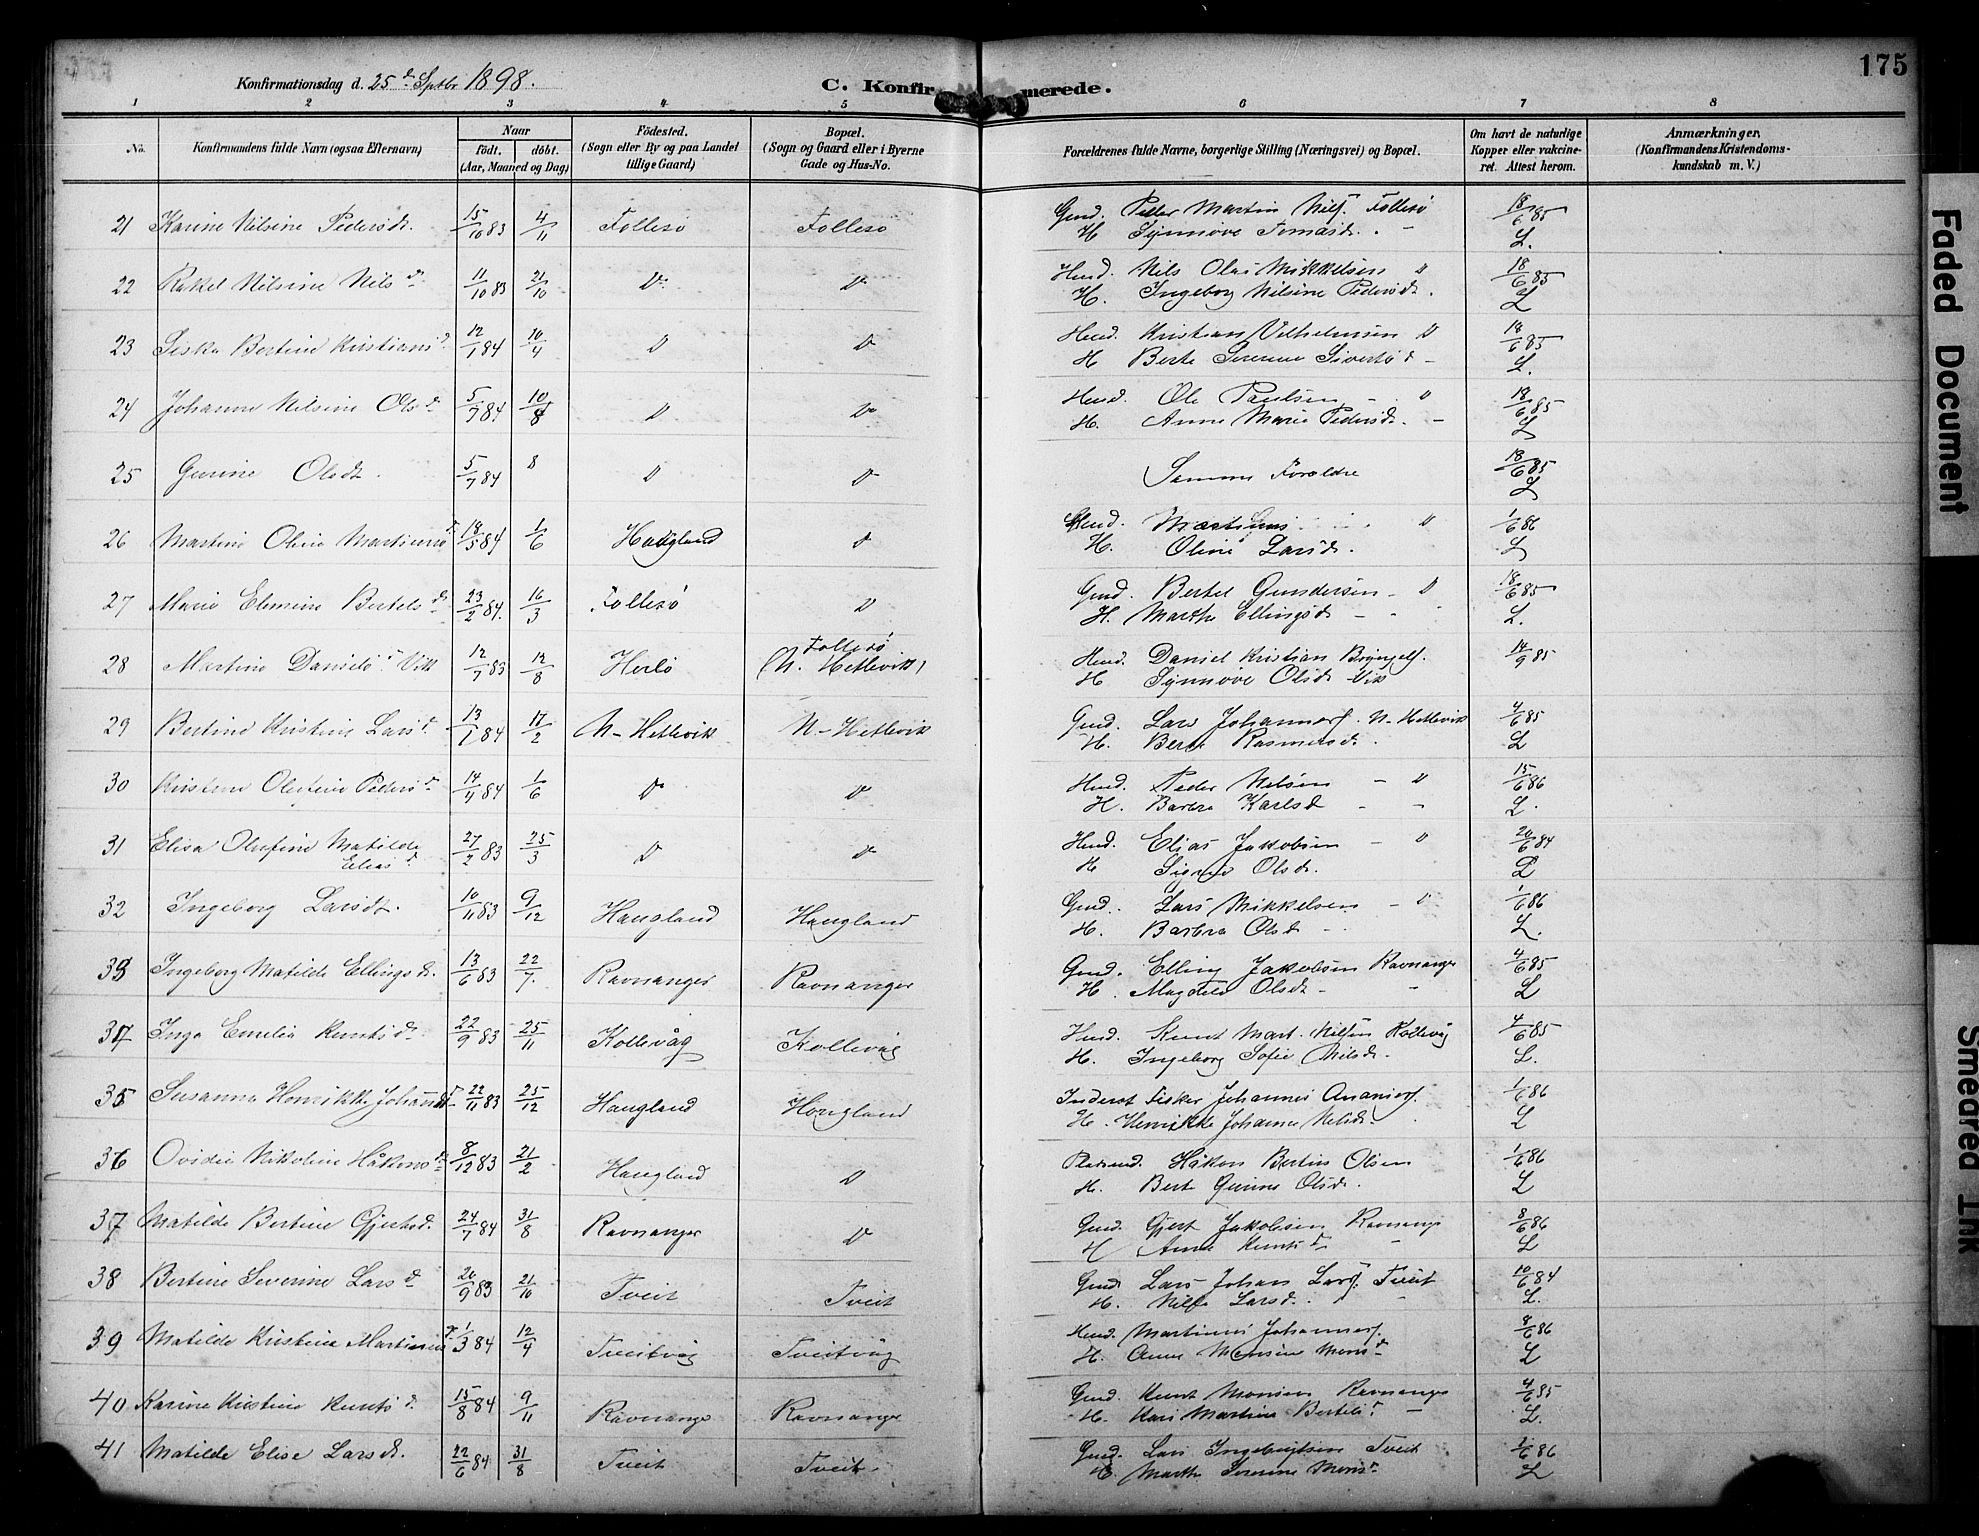 175
Konfirmationsdag d. 25de Septbr 1898.
C. Konfirmerede.
1 2 3 4 5 6 7 8
No. Konfirmandens fulde Navn (ogsaa Efternavn) Naar födt. döbt. (Aar, Maaned og Dag) Födested. (Sogn eller By og paa Landet tillige Gaard) Bopæl. (Sogn og Gaard eller i Byerne Gade og Hus-No.) Forældrenes fulde Navne, borgerlige Stilling (Næringsvei) og Bopæl. Om havt de naturlige Kopper eller vakcineret. Attest herom. Anmærkninger. (Konfirmandens Kristendomskundskab m. V.)
21 Karine Nilsine Pedersdt. 15/10 83 4/11 Follesö Follesö Gmd. Peder Martin Nils. Follesö 18/6 85
H Synnöve Tomasdt. - L.
22 Rakel Nilsine Nilsd 11/10 83 21/10 D D Hmd. Nils Olai Mikkelsen " 18/6 85
H. Ingeborg Nilsine Pedersdt. L
23 Siska Bertine Kristiansd. 12/1 84 10/4 D D Hmd. Kristian Vilhelmsen D 18/6 85
H Berte Severine Sivertsd - L.
24 Johanne Nilsine Olsd 5/7 84 10/8 D D Hmd. Ole Paulsen - D 18/6 85
H. Anne Marie Pedersdt. - L
25 Gurine Olsdt. 5/7 84 8 D D Samme Forældre 18/6 85
L
26 Martine Oline Martinusd 18/5 84 1/6 Haugland D Hmd. Martinus D 1/6 86
H. Oline Larsdt. L
27 Marie Elenine Bertelsd 23/2 84. 16/3 Follesö D Gmd. Bertel Gundersen - D 18/6 85
H. Marthe Ellingsdt - L.
28 Martine Danielsd Vik 12/7 83 12/8 Herlö Follesö (N. Hetlevik) Hmd. Daniel Kristian Bryngels. 14/9 85
H Synnöve Olsdt Vik
29 Bertine Kristine Larsd 13/1 84 17/2 N-Hetlevik N-Hetlevik Gmd. Lars Johannes. N-Hetlevik 4/6 85
H. Berte Rasmusdt. L
30 Kristine Olufine Pedersd 14/4 84 1/6 D D Hmd. Peder Nilsen - D 15/6 86
H. Barbra Karlsd - - L.
31 Elisa Olufine Matilde Eliasd 27/2 83 25/3 D D Hmd. Elias Jakobsen - D 20/6 84
H Signe Olsdt. L
32 Ingeborg Larsdt. 10/11 83 9/12 Haugland Haugland Gmd. Lars Mikkelsen - D 1/6 86
H. Barbra Olsd - L.
33 Ingeborg Matilde Ellingsdt. 13/6 83 22/7. Ravnanger Ravnanger Gmd. Elling Jakobsen Ravnanger 4/6 85
H. Magdele Olsdt - - L
34 Inga Emelia Knutsdt. 22/9 83 25/11 Kollevåg Kollevåg Hmd. Knut Mart. Nilsen Kollevåg 4/6 85
H. Ingeborg Sofie Nilsdt. L.
35 Susanna Henrikke Johannsd 22/11 83 25/12 Haugland Haugland Inderst Fisker Johannes Ananias. 1/6 86
H. Henrikke Johanne Nilsdt. L
36 Ovidie Nikoline Håkonsd 8/12 83 21/2 Haugland D Pladsmd. Håkon Bertin Olsen 1/6 86
H. Berte Gurine Olsdt. L
37 Matilde Bertine Gjertsd. 24/7 84 31/8 Ravnanger D Gmd. Gjert Jakobsen Ravnange 8/6 86
H Anne Knutsd - L
38 Bertine Severine Larsd 20/9 83 21/10 Tveit Tveit Gmd. Lars Johan Lars. Tveit 10/6 84
H. Nille Larsd. - L.
39 Matilde Kristine Martinusd 1/3 84 12/4 Tveitvåg Tveitvåg Hmd. Martinus Johannes. 8/6 86
H. Anne Monsine Monsd L
40 Karine Kristine Knutsd 15/8 84 9/11 Ravnange Ravnange Gmd. Knut Monsen Ravnange 4/6 85
H. Kari Martine Bertelsd. - L.
41 Matilde Elise Larsdt. 22/6 84 31/8 Tveit Tveit Gmd. Lars Ingebrigtsen Tveit 1/6 86
H. Marthe Severine Monsd L
Faded Document
Smeared Ink